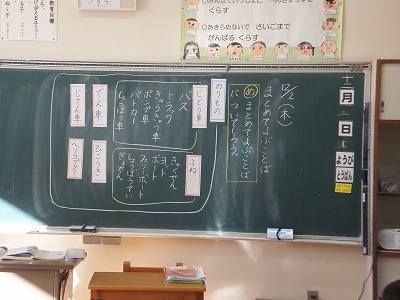 〇あきらめないで さいごまで
がんばる くらす
十二月
二日
木
ようび
とうばん
12/2(木)
まとめてよぶことば
め
まとめてよぶことば
についてしろう。
のりもの
じどう車
バス
トラック
きゅうきゅう車
ポンプ車
パトカー
しょうぼう車
ふね
きゃくせん
ヨット
ボート
フェリーボート
しょうぼうてい
ぎょせん
でん車
じてん車
ひこうき
ヘリコプター